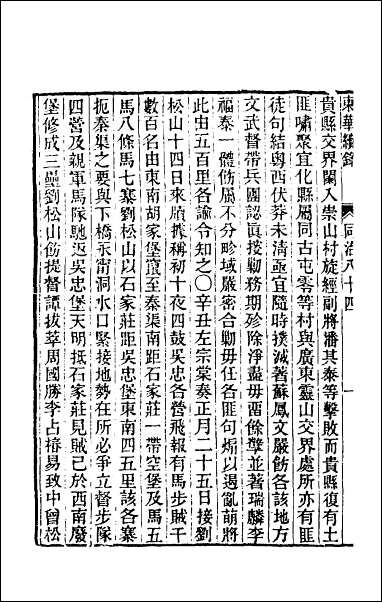 東華續錄　同治八十四　一
貴縣交界闌入崇山村旋經副將潘其泰等擊敗而貴縣復有土
匪嘯聚宜化縣屬同古屯雩等村與廣東靈山交界處所亦有匪
徒句結粵西伏莽未清亟宜隨時撲滅著蘇鳳文嚴飭各該地方
文武督帶兵團認眞搜勦務期殄除淨盡毋畱餘孽並著瑞麟李
福泰一體飭屬不分畛域嚴密合勦毋任各匪句煽以遏亂萌將
此由五百里各諭令知之〇辛丑左宗棠奏正月二十五日接劉
松山十四日來牘據稱初十夜四鼓吳忠各營飛報有馬步賊千
數百名由東南胡家堡竄至秦渠南距石家莊一帶空堡及馬五
馬八條馬七寨劉松山以石家莊距吳忠堡東南四五里該各寨
扼秦渠之要與下橋永甯洞水口緊接地勢在所必爭立督步隊
四營及親軍馬隊馳返吳忠堡天明抵石家莊見賊已於西南廢
堡修成三壘劉松山飭提督譚拔萃周國勝李占椿易致中曾松